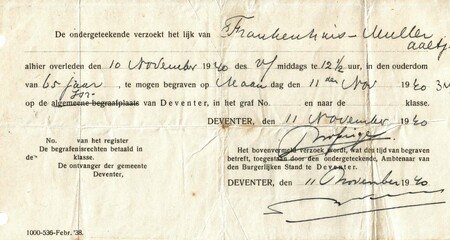 De ondergeteekende verzoekt het lijk van Frankenhuis-Muller
Aaltje
alhier overleden den 10 November 1940 des v/ middags te 12½ uur, in den ouderdom
van 65 jaar, te mogen begraven op Maan dag 11 den Nov 1940
op de algemeene begraafplaats van Deventer, in het graf No. en naar de klasse.
DEVENTER, den 11 November 1940
No. van het register
De begrafenisrechten betaald in
klasse.
De ontvanger der gemeente
Deventer,
Het bovenvermeld verzoek wordt, wat den tijd van begraven
betreft, toegestaan door den ondergeteekende, Ambtenaar van
den Burgerlijken Stand te Deventer.
DEVENTER, den 11 November 1940
1000-536-Febr. '38.